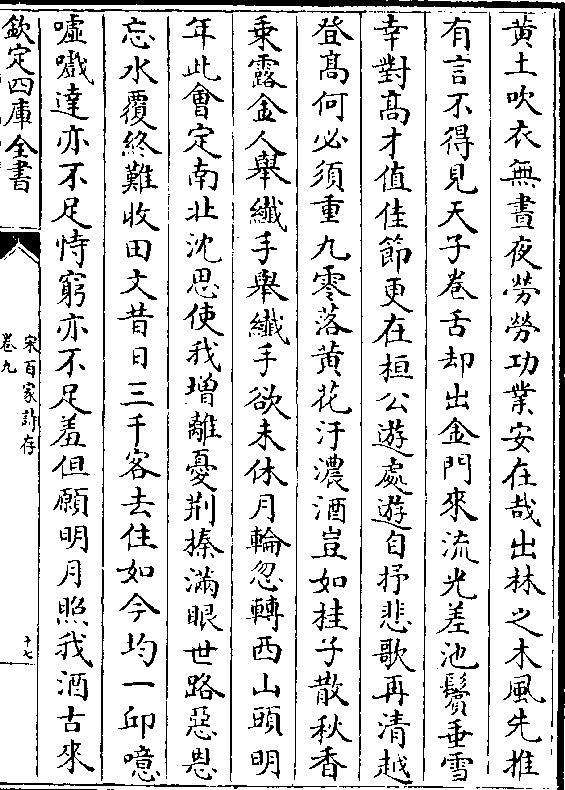 黄土吹衣無晝夜勞勞功業安在哉出林之木風先推
有言不得見天子卷舌却出金門來流光差池鬢垂雪
幸對髙才值佳節更在桓公遊處遊自抒悲歌再清越
登髙何必須重九零落黄花汙濃酒豈如桂子散秋香
乗露金人舉纖手舉纖手欲未休月輪忽轉西山頭明
年此會定南北沈思使我增離憂荆榛滿眼世路惡恩
忘水覆終難收田文昔日三千客去住如今均一邱噫
嘘嚱達亦不足恃窮亦不足羞但願明月照我酒古來
欽定四庫全書
宋百家詩存
卷九
十七